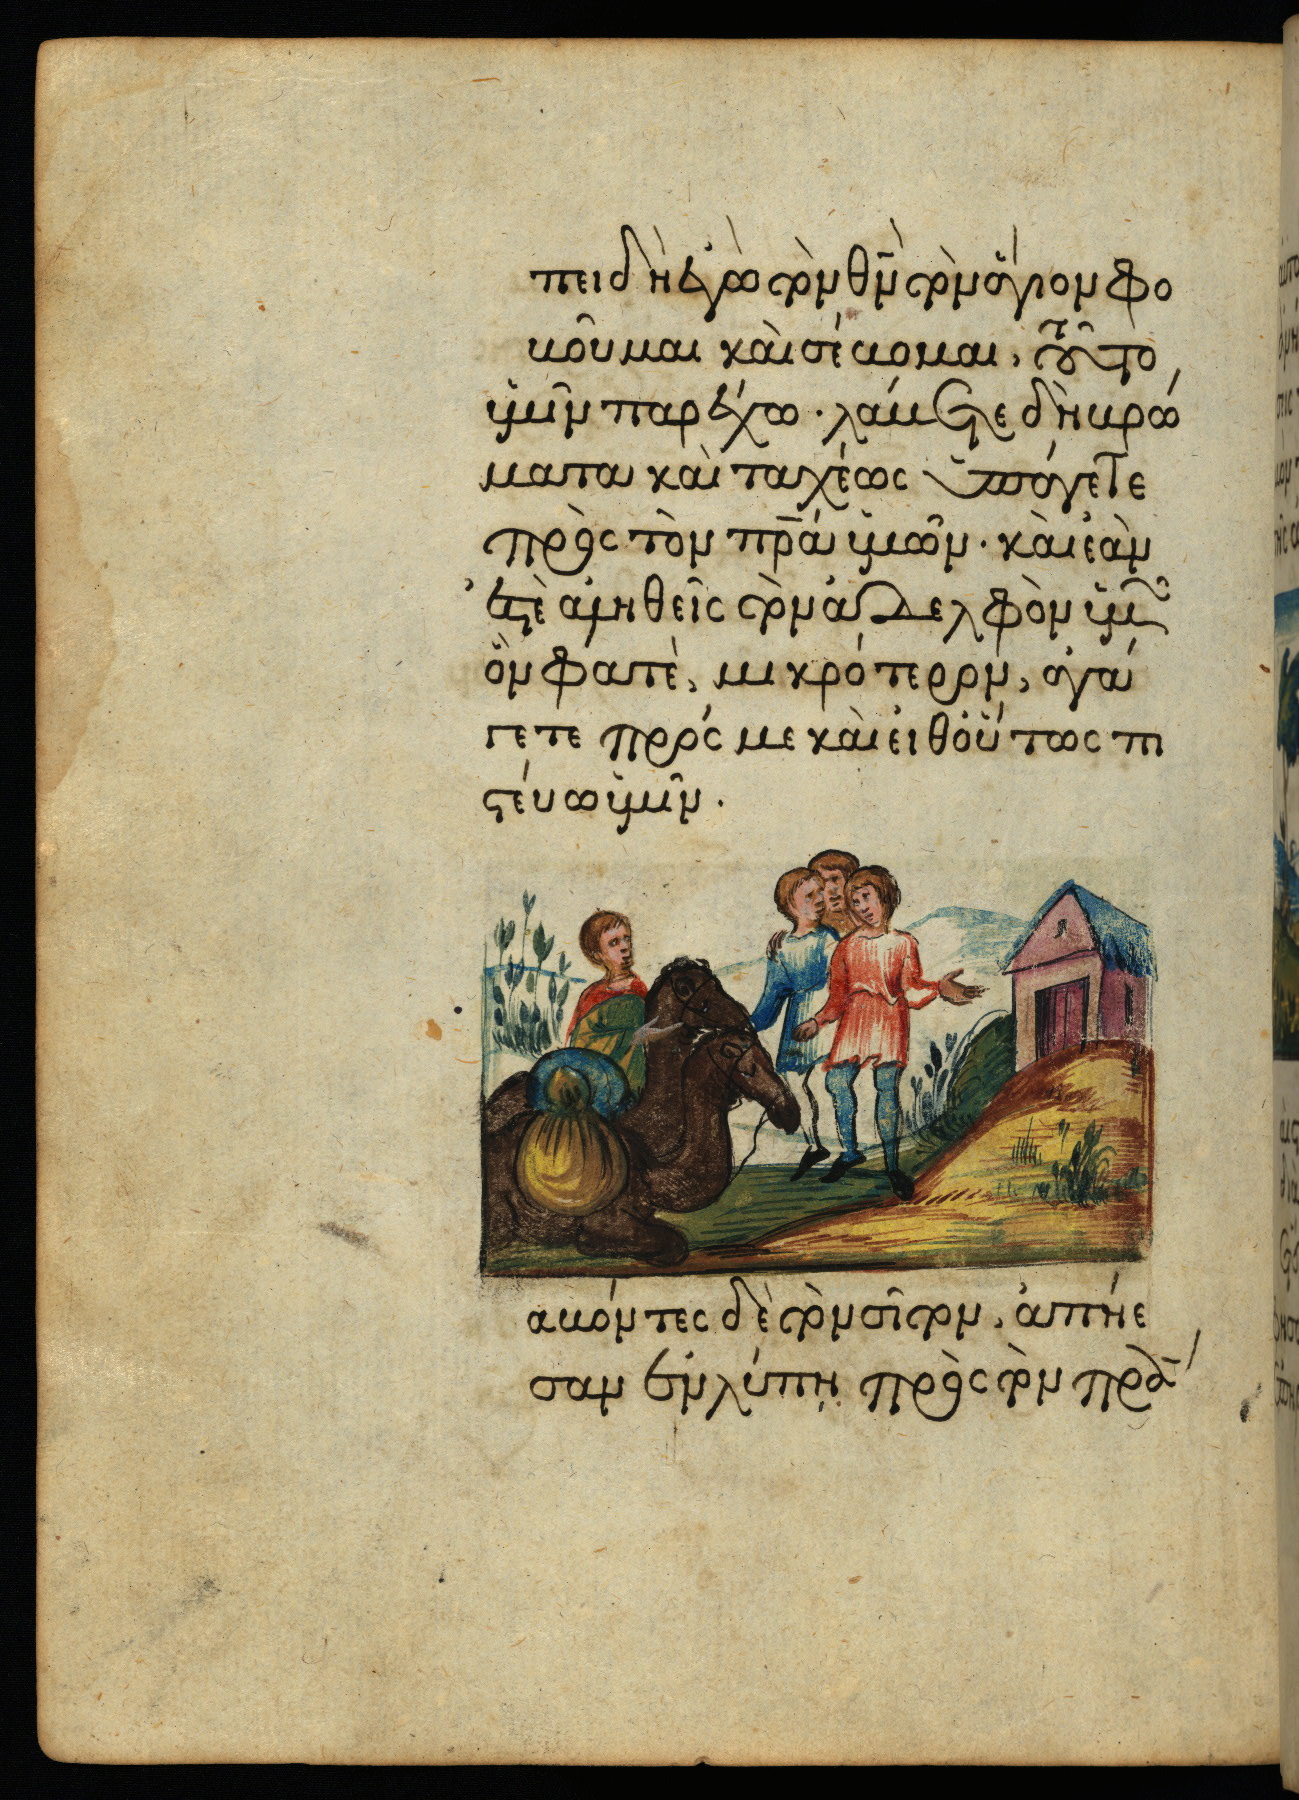 πειδὴ ἐγὼ τὸν θν̄ τὸν ἅγιον φο
βοῦμαι καὶ σέβομαι, τοῦτο
ὑμῖν παρέχω · λάβετε δὴ βρώ
ματα καὶ ταχέως ὑπάγετε
πρὸς τὸν πρ̄α ὑμῶν · καὶ ἐὰν
ἐστὲ ἀληθεῖς τὸν ἀδελφὸν ὑμῶν
ὃν φατὲ, μικρότερον, ἀγά
γετε πρός με καὶ εἰθ οὕτως πι
στεύω ὑμῖν ·
αβόντες δὲ τὸν σῖτον, ἀπήε
σαν σὺν λύπῃ πρὸς τὸν πρ̄α